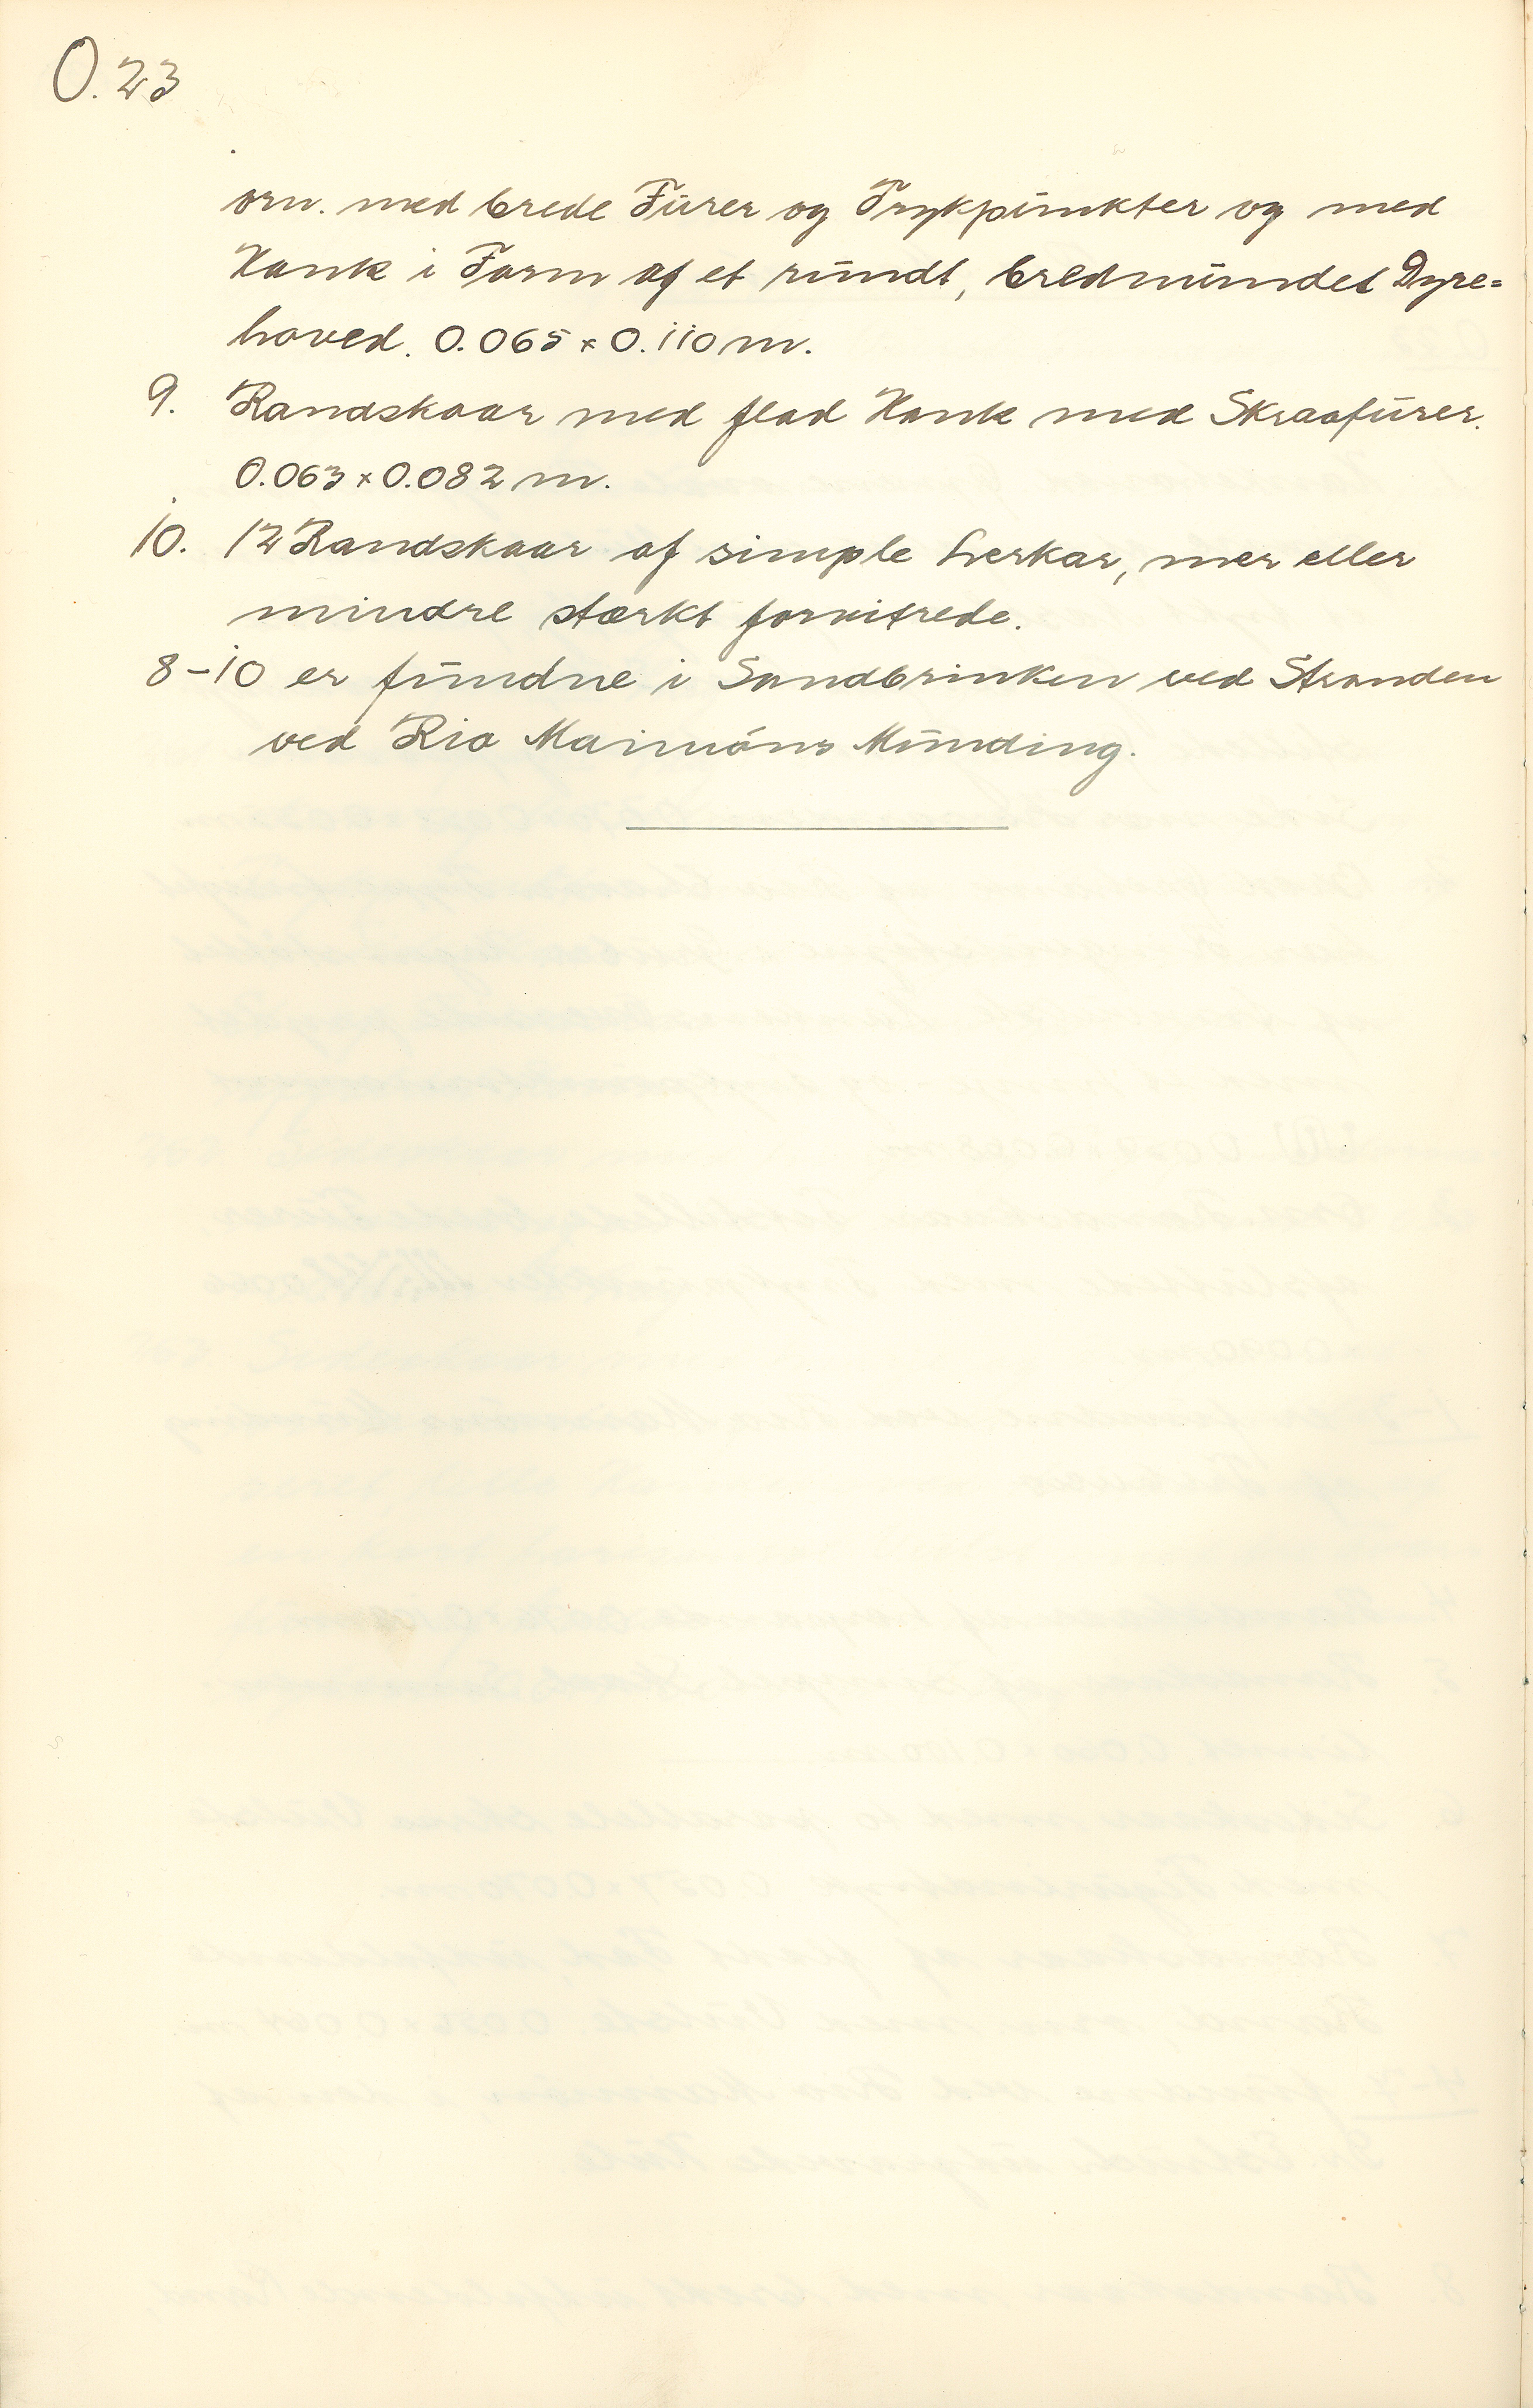 O.23
orn. med brede Furer og Trykpunkter og med
Hank i Form af et rundt, bredmundet Dyre=
hoved. 0.065 x 0.110 m.
9. Randskaar med flad Hank med Skraafurer.
0.063 x 0.082 m.
10. 12 Randskaar af simple Lerkar, mer eller
mindre stærkt forvitrede.
8-10 er fundne i Sandbrinken ved Stranden
ved Rio Maimóns Munding.